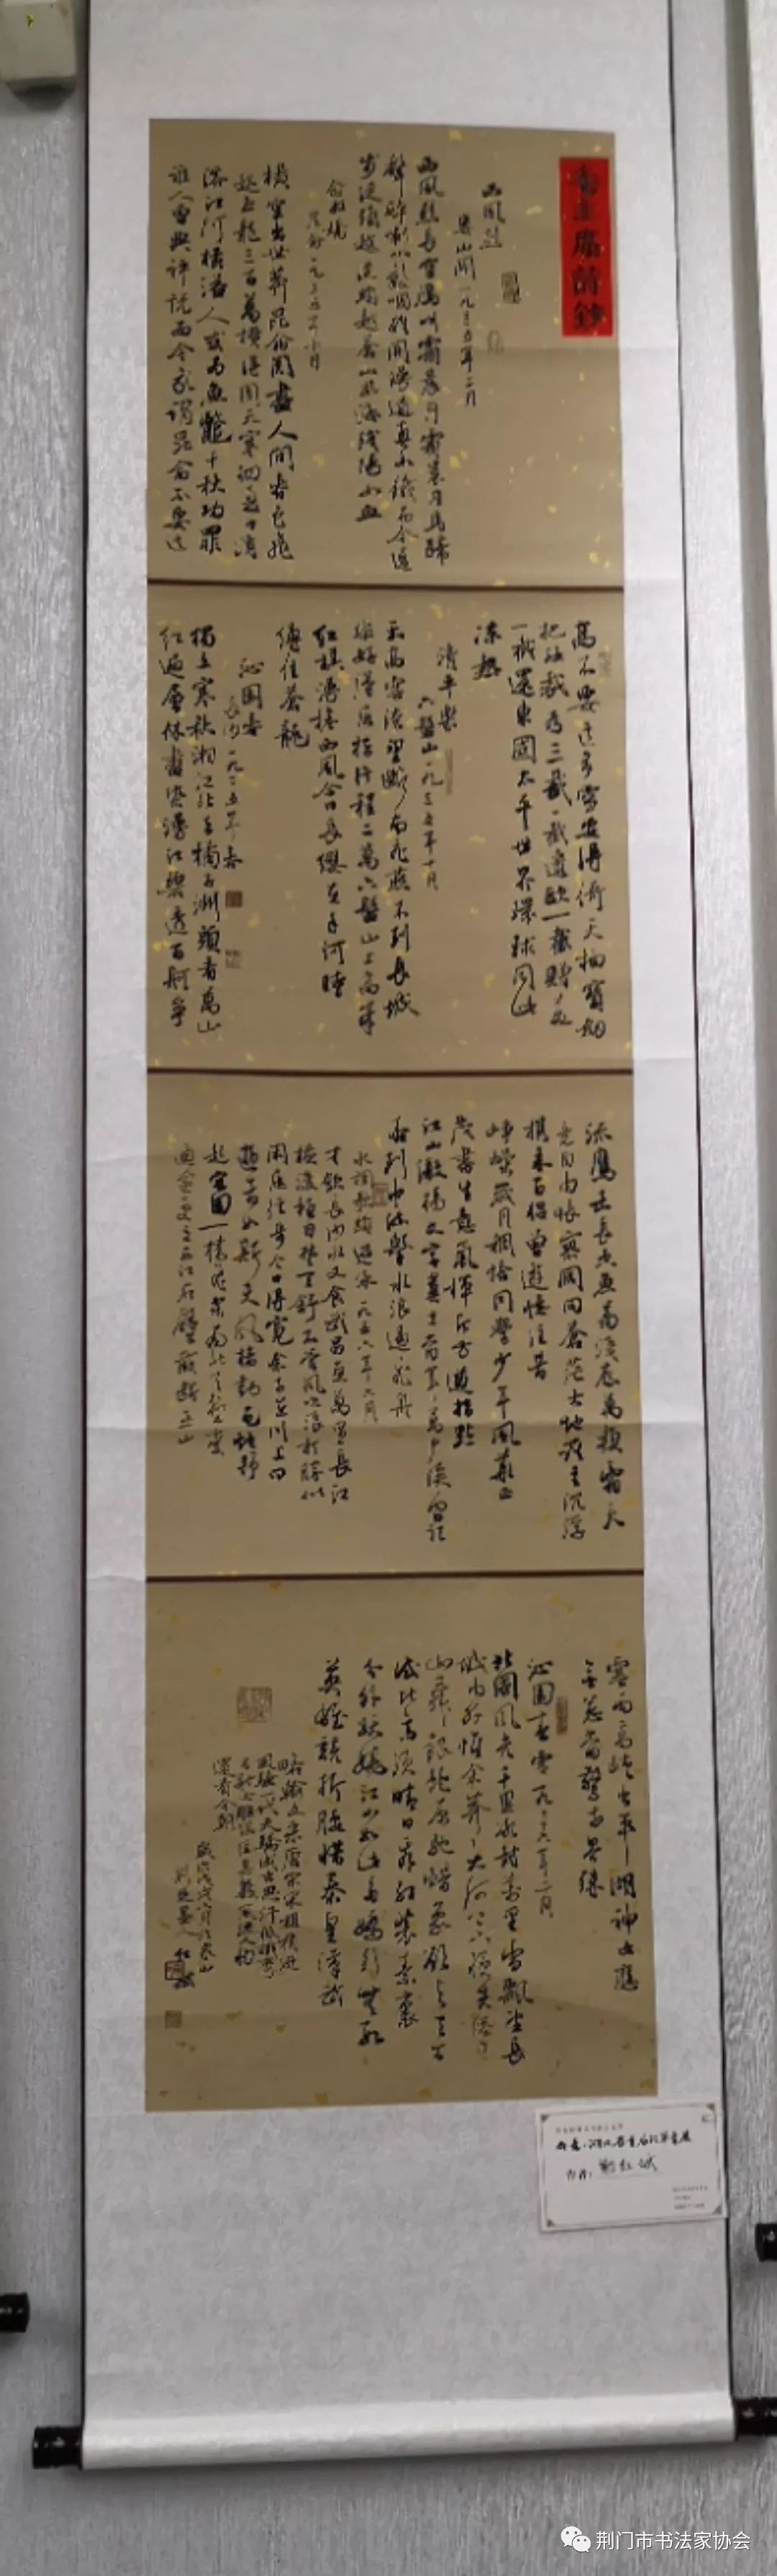 毛主席诗钞
西风烈
娄山关一九三五年二月
西风烈长空雁叫霜晨月霜晨月马蹄
声碎喇叭声咽雄关漫道真如铁而今迈
步从头越从头越苍山如海残阳如血
横空出世莽昆仑阅尽人间春色飞
起玉龙三百万搅得周天寒彻夏日消
溶江河横溢人或为鱼鳖千秋功罪
谁人曾与评说而今我谓昆仑不要这
高不要这多雪安得倚天抽宝剑
把汝裁为三截一截遗欧一截赠美
一截还东国太平世界环球同此
凉热
清平乐
六盘山一九三五年十月
天高云淡望断南飞雁不到长城
非好汉屈指行程二万六盘山上高峰
红旗漫卷西风今日长缨在手何时
缚住苍龙
沁园春
长沙一九二五年春
独立寒秋湘江北去橘子洲头看万山
红遍层林尽染漫江碧透百舸争
流鹰击长空鱼翔浅底万类霜天
竞自由怅寥廓问苍茫大地谁主沉浮
携来百侣曾游忆往昔
峥嵘岁月稠恰同学少年风华正
茂书生意气挥斥方遒指点
江山激扬文字粪土当年万户侯曾记
否到中流击水浪遏飞舟
水调歌头游泳一九五六年六月
才饮长沙水又食武昌鱼万里长江
横渡极目楚天舒不管风吹浪打胜似
闲庭信步今日得宽余子在川上曰
逝者如斯夫风樯动龟蛇静
起宏图一桥飞架南北天堑变
通途更立西江石壁截断巫山
云雨高峡出平湖神女应
无恙当惊世界殊
沁园春雪一九三六年二月
北国风光千里冰封万里雪飘望长
城内外惟余莽莽大河上下顿失滔滔
山舞银蛇原驰蜡象欲与天公
试比高须晴日看红装素裹
分外妖娆江山如此多娇引无数
英雄竞折腰惜秦皇汉武
略输文采唐宗宋祖稍逊
风骚一代天骄成吉思汗只识弯
弓射大雕俱往矣数风流人物
还看今朝
荆门市书法家协会